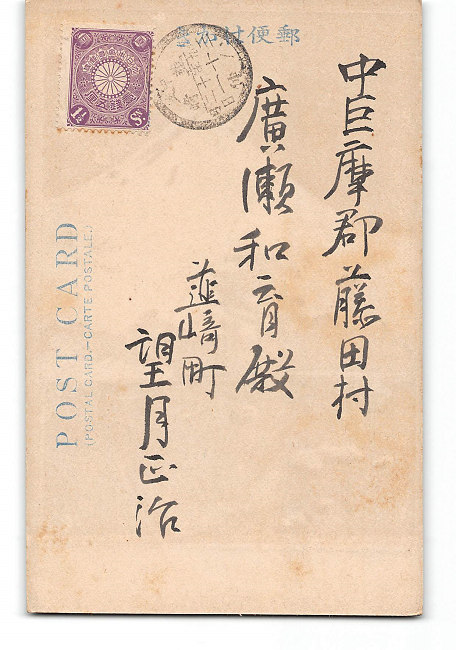 郵便
中巨摩郡藤田村
廣瀬和育殿
韮﨑町
望月正治
POST CARD
(POSTAL CARD.—CARTE POSTALE.)
1½ Sn.